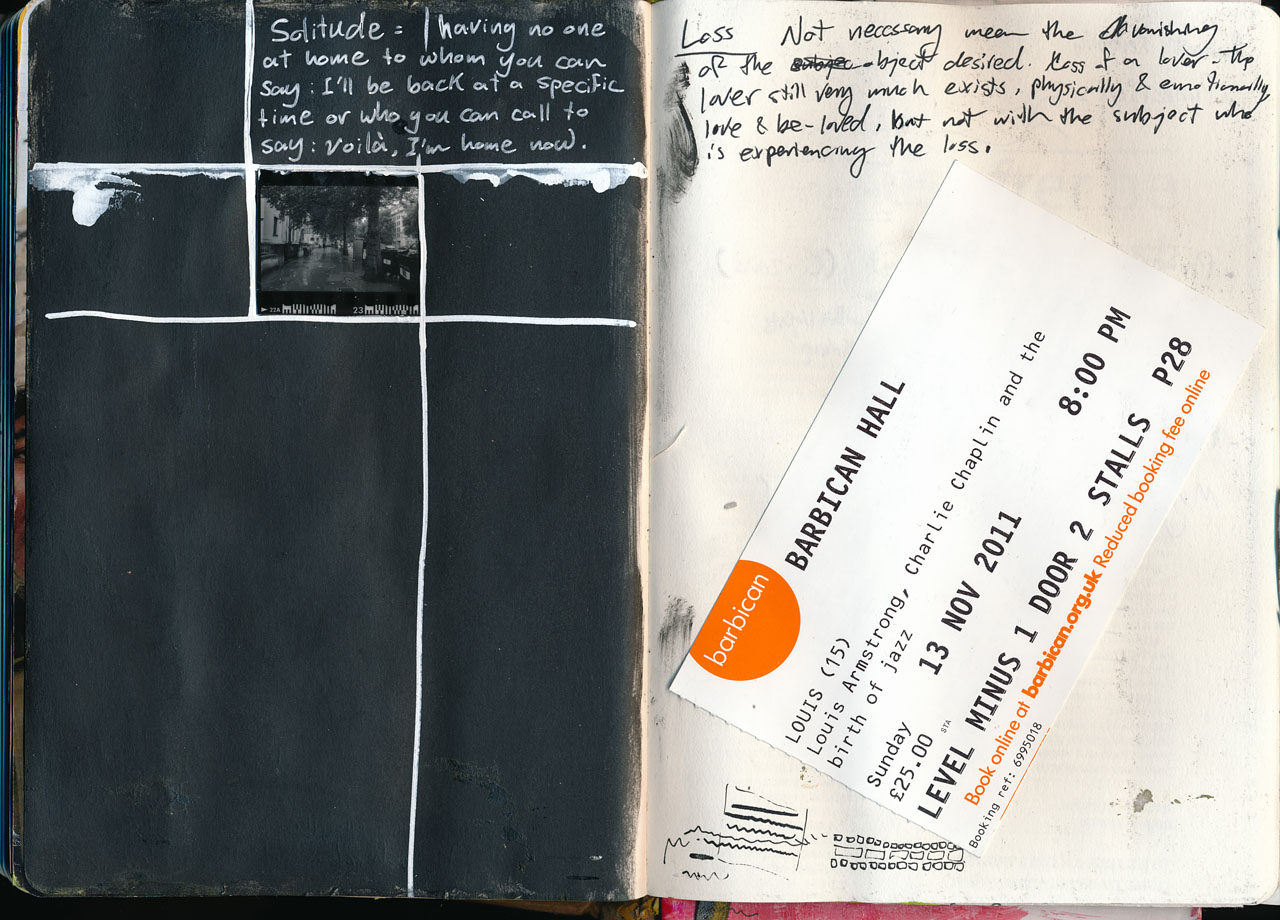 Solitude = having no one
at home to whom you can
say: I'll be back at a specific
time or who you can call to
say: voilà, I'm home now.
22A
23
Loss Not necessary mean the vanishing
of the object desired. Loss of a lover - the
lover still very much exists, physically & emotionally,
love & be-loved, but not with the subject who
is experiencing the loss.
barbican
BARBICAN HALL
LOUIS (15)
Louis Armstrong, Charlie Chaplin and the
birth of jazz
Sunday 13 NOV 2011 8:00 PM
£25.00 STA
LEVEL MINUS 1 DOOR 2 STALLS P28
Book online at barbican.org.uk Reduced booking fee online
Booking ref: 6995018